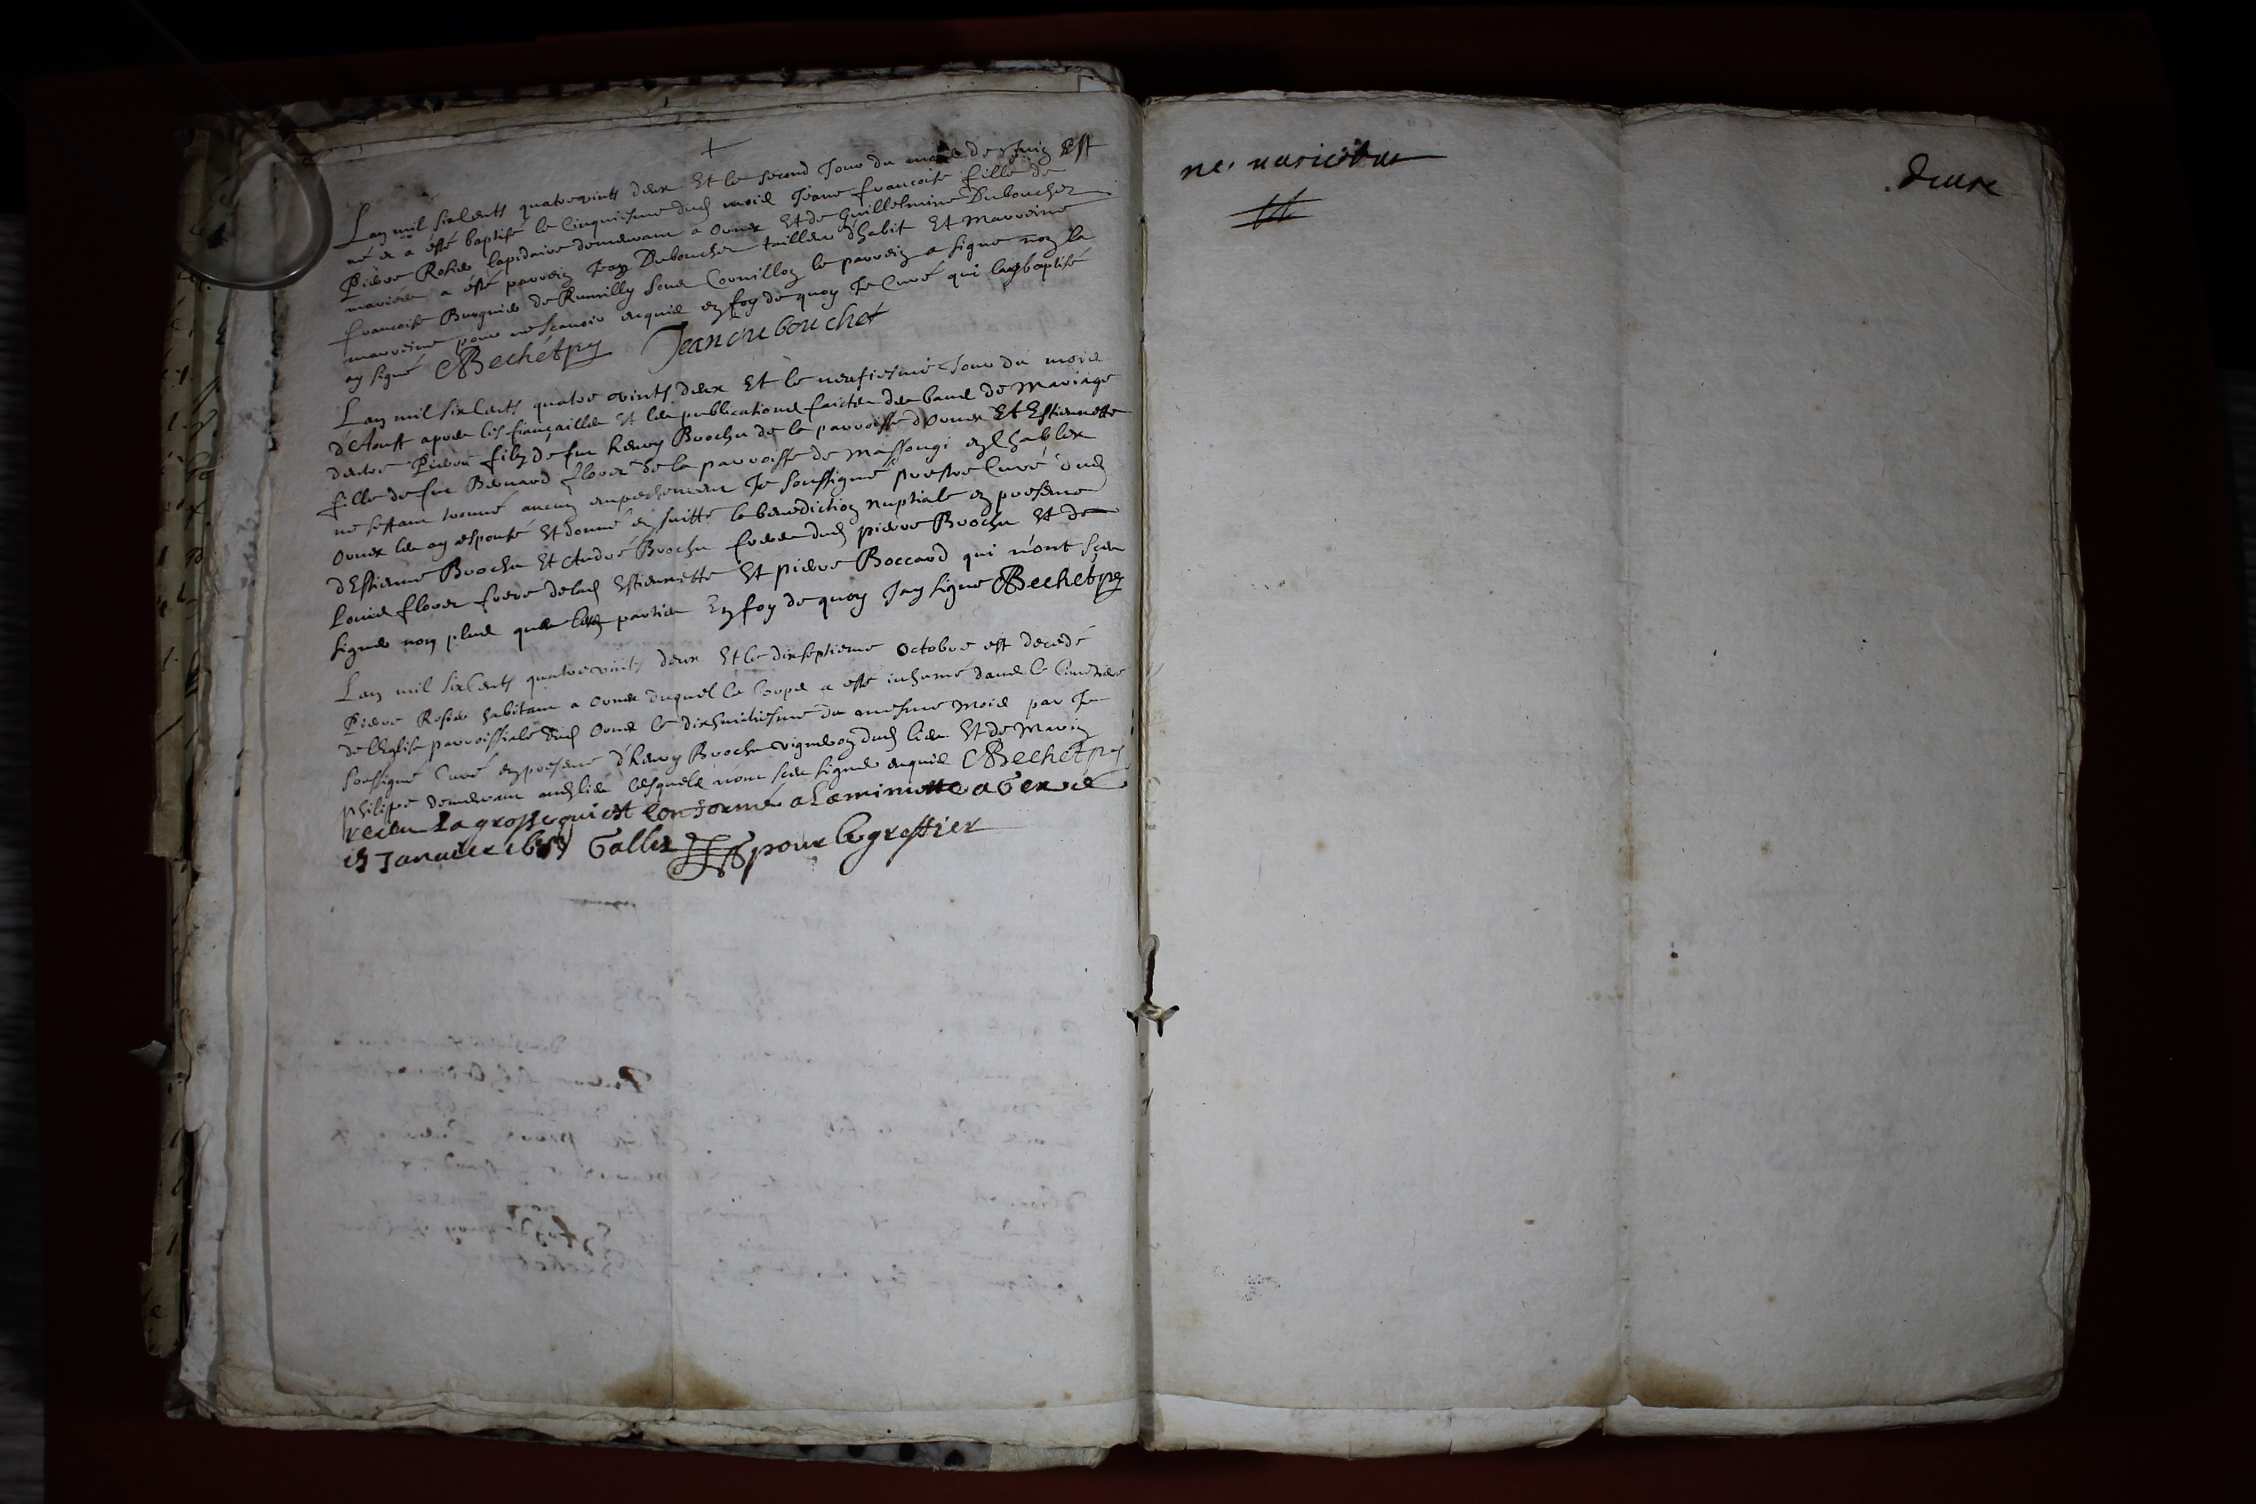 +
Lan mil six Cents quatrevints deux Et le second Jour du mois de Juin Est
né et a esté baptisé le Cinquiesme dud mois Jeane francoise fille de
Pierre Rosier lapidaire demeurant a Ornex Et de Guillelmine Duboucher
mariés a esté parrein Jean Duboucher tailleur d'habit Et Marreine
francoise de Rumilly sous Cornillon le parrein a signé non la
marreine pour ne scavoir enquis en foy de quoy Je Curé qui lay baptisé
ay signé Bechet prê Jean du bouchet
Lan mil six Cents quatre vints deux Et le neufiesme Jour du mois
d'Aoust apres les fiançailles Et les publications faictes des bans de Mariage
entre Pierre filz de feu henry Brochu de la parroisse d'Ornex Et Estiennette
fille de feu Bernard floret de la parroisse de Massongi en Chablex
ne sestant trouvé aucun empeschement Je soussigné prestre Curé dud
Ornex les ay espousé Et donné en suitte la benediction nuptiale en presence
d'Estienne Brochu Et André Brochu freres dud pierre Brochu Et de
Louis floret frere de lad Estiennette Et pierre Boccard qui n'ont sceu
signer non plus que les parties En foy de quoy Jay signé Bechet prê
Lan mil six Cents quatrevints deux Et le dixseptieme Octobre est decedé
Pierre Rosier habitant a Ornex duquel le Corps a esté inhumé dans le Cimetiere
de l'Eglise parroissiale dud Ornex le dixhuitiesme du mesme mois par Je
soussigné Curé en presence d'henry Brochu vigneron dud lieu Et de Marin
philippe demeurant aud lieu lesquels n'ont sceu signer enquis Bechet prê
receu La grosse qui est conforme a La minutte a Gex ce
Janvier Gallet pour le greffier
ne varietur